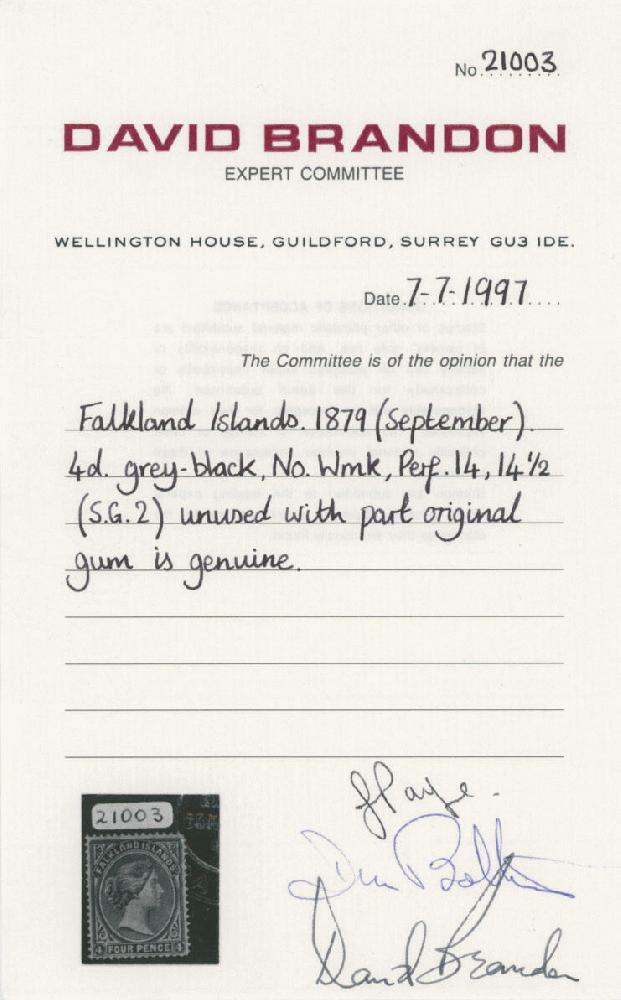 No. 21003
DAVID BRANDON
EXPERT COMMITTEE
WELLINGTON HOUSE, GUILDFORD, SURREY GU3 1DE.
Date. 7-7-1997
The Committee is of the opinion that the
Falkland Islands. 1879 (September).
4d. grey-black, No. Wmk, Perf. 14, 14½
(S.G. 2) unused with part original
gum is genuine.
21003
FALKLAND ISLANDS
4 FOUR PENCE 4
David Brandon